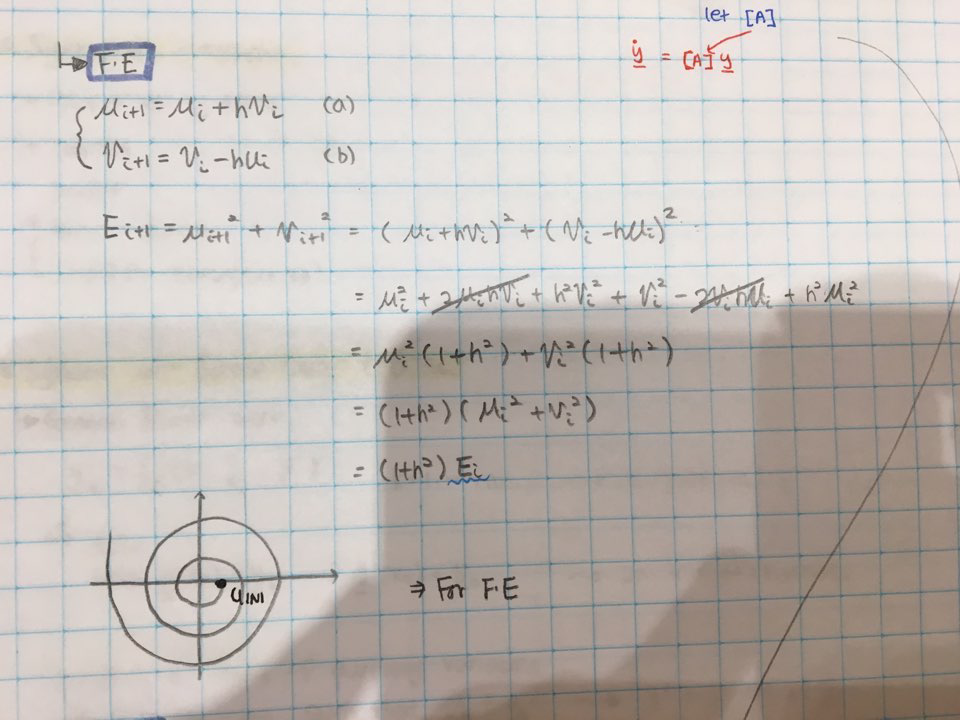 let [A]
F.E
ẏ = [A] y
μᵢ₊₁ = μᵢ + hvᵢ (a)
vᵢ₊₁ = vᵢ - hμᵢ (b)
Eᵢ₊₁ = μᵢ₊₁² + vᵢ₊₁² = (μᵢ + hvᵢ)² + (vᵢ - hμᵢ)²
= μᵢ² + 2μᵢhvᵢ + h²vᵢ² + vᵢ² - 2vᵢhμᵢ + h²μᵢ²
= μᵢ²(1+h²) + vᵢ²(1+h²)
= (1+h²)(μᵢ² + vᵢ²)
= (1+h²) Eᵢ
UINI
⇒ For F.E